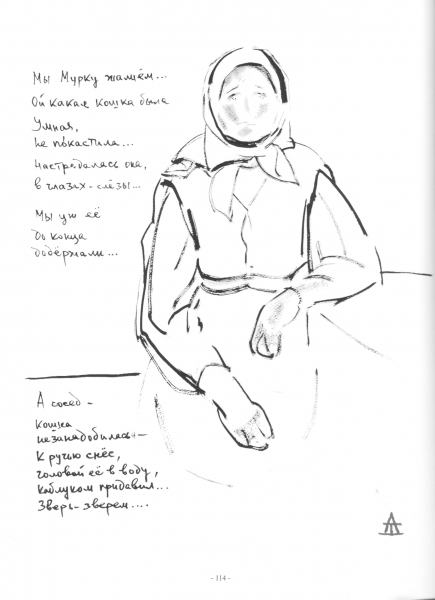 Мы Мурку жалием...
Ой какая кошка была
Умная,
не покастила...
Настрадалась она,
в глазах - слёзы...
Мы уж её
до конца
додержали...
А сосед -
кошка
незанадобилась -
К ручью снёс,
головой её в воду,
каблуком придавил...
Зверь - зверем....
- 114 -